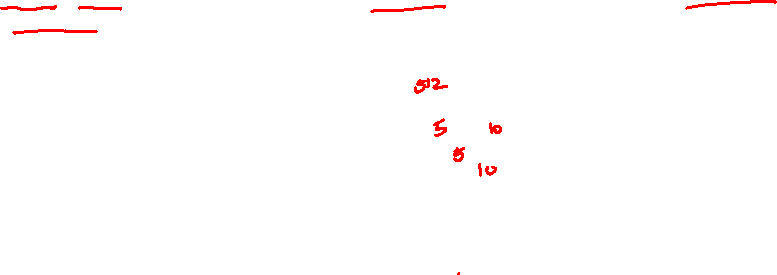 512
5 10
8
10